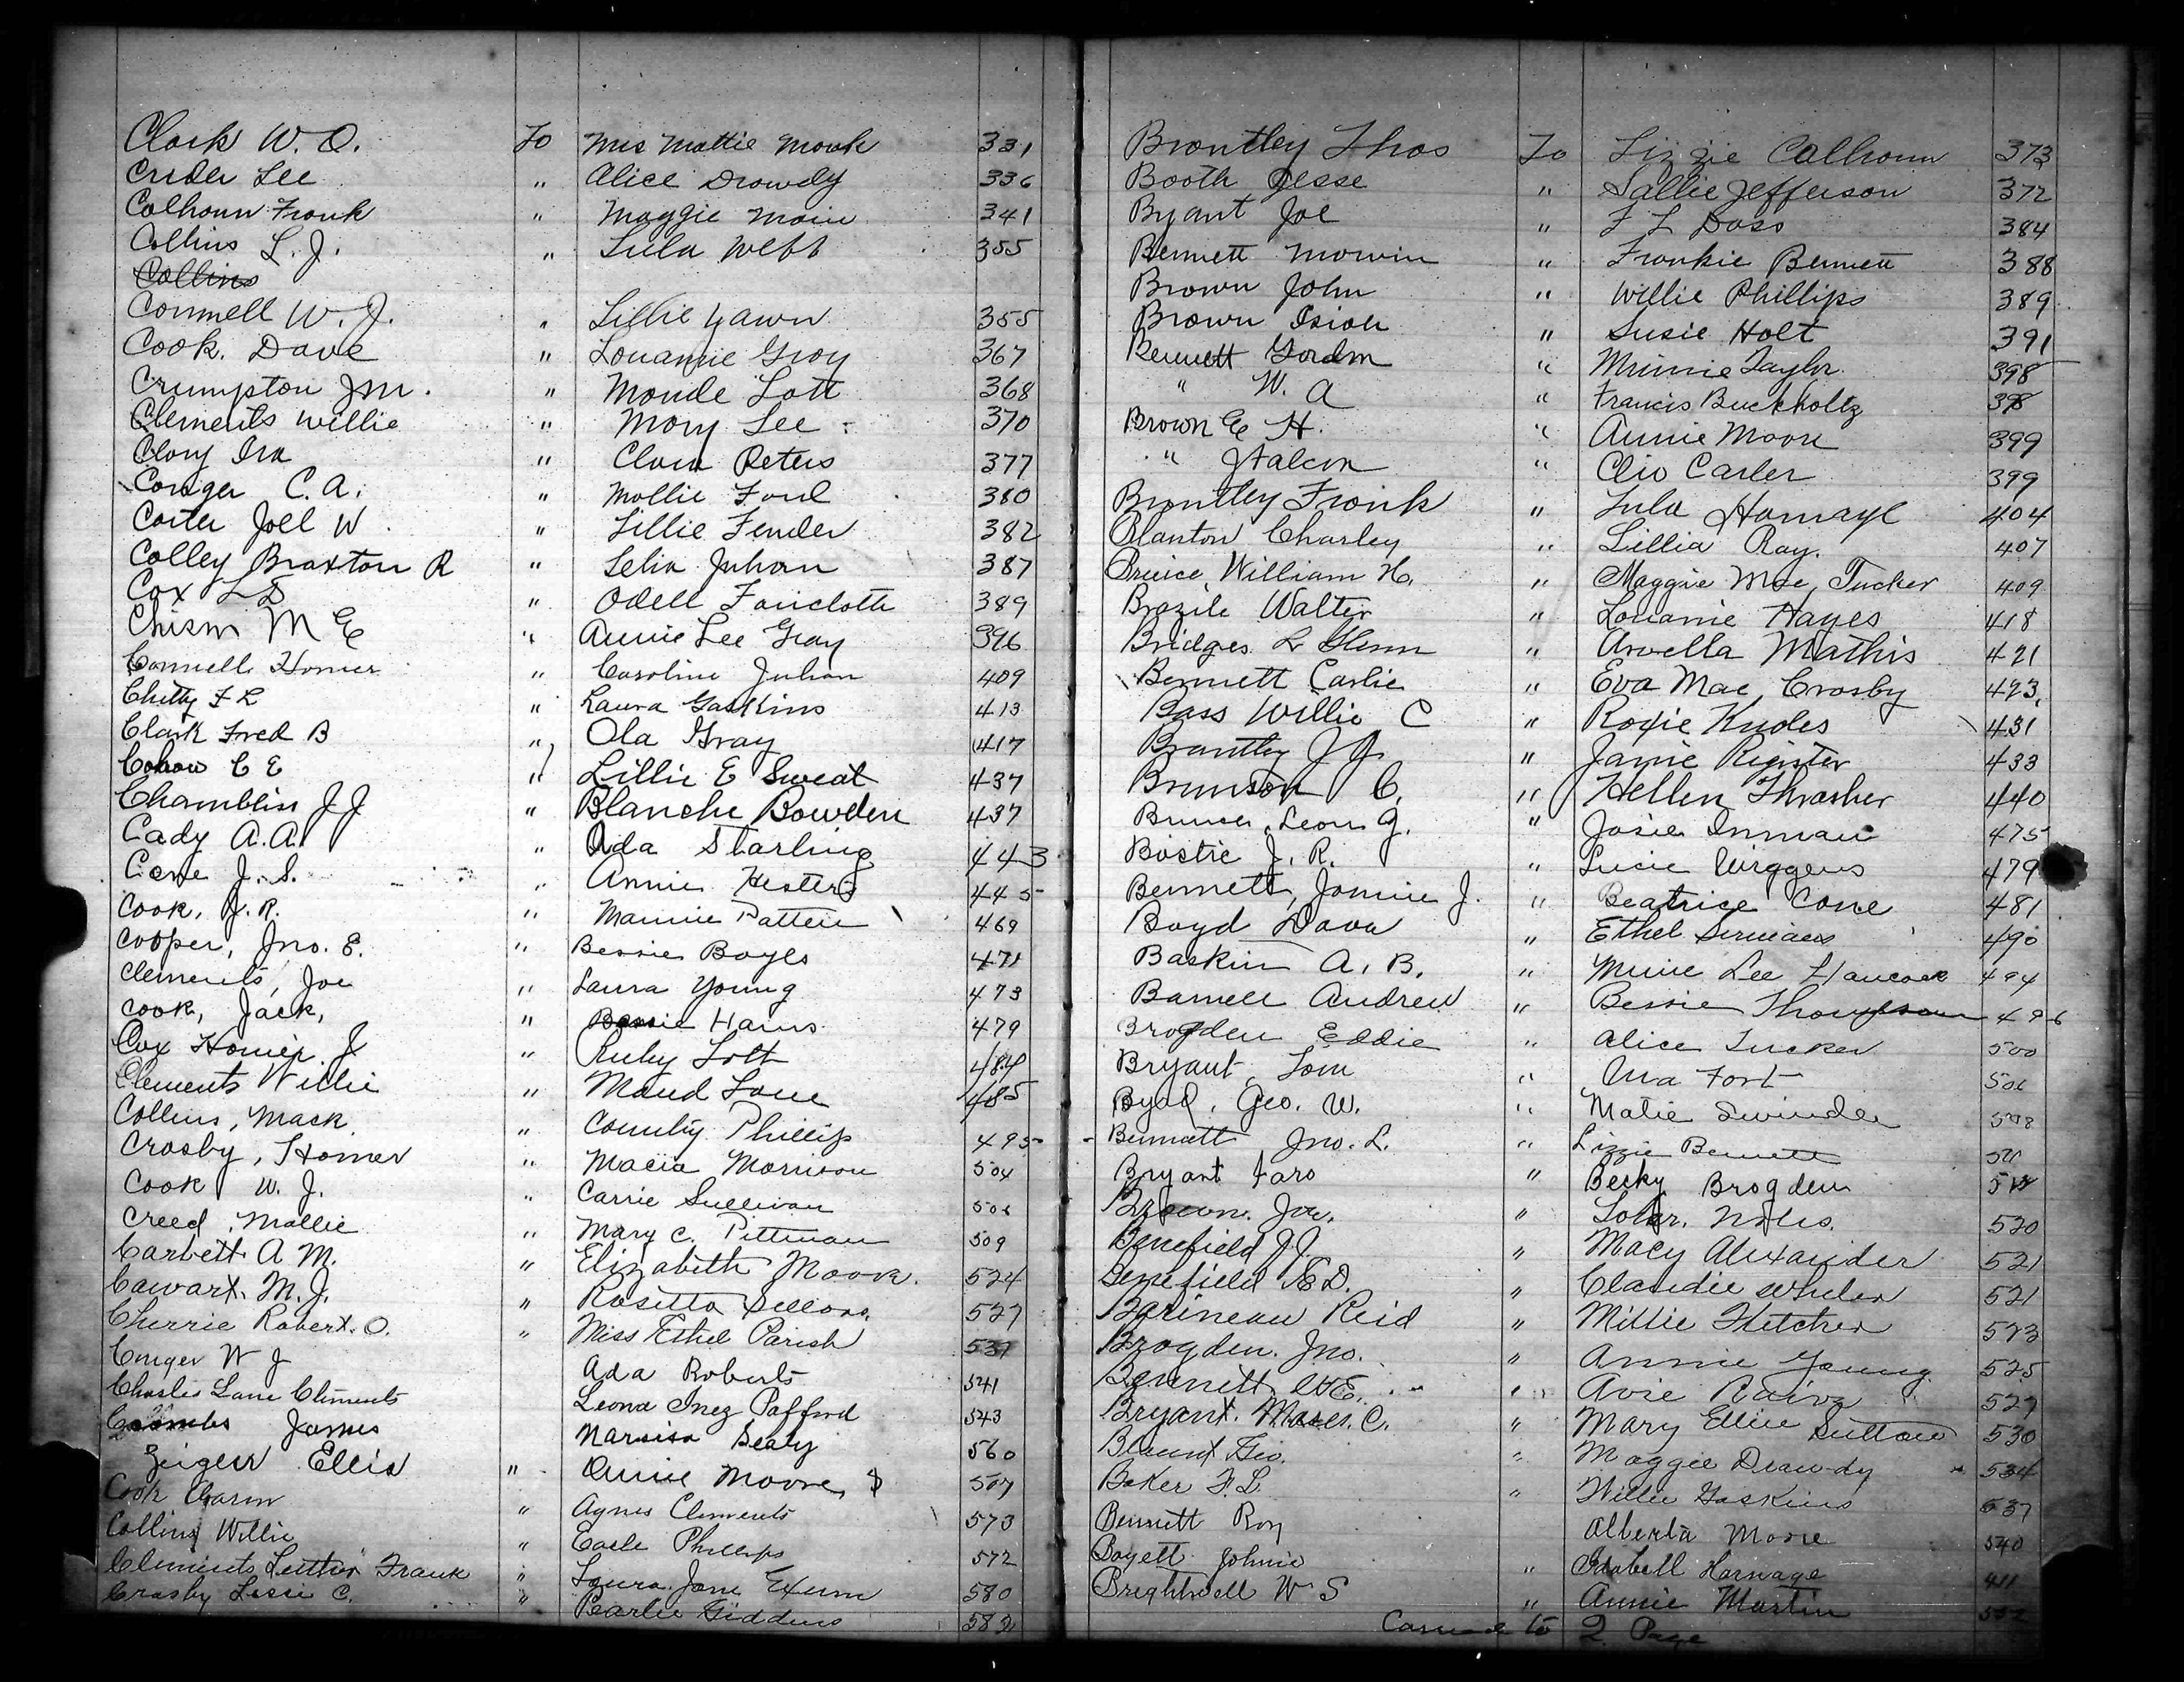 Clark W. O. To Mrs Mattie Monk 331
Crider Lee " Alice Drowdy 336
Calhoun Frank " Maggie Main 341
Collins L. J. " Lula Webb 355
Collins
Connell W. J. " Lillie Yawn 355
Cook. Dave " Louannie Gray 367
Crumpton Jm. " Maude Lott 368
Clements Willie " Mary Lee 370
Clary Ira " Clara Peters 377
Conger C. A. " Mollie Ford 380
Carter Joel W " Lillie Fender 382
Colley Braxton R " Lelia Juhan 387
Cox L D " Odell Faircloth 389
Chism M E " Annie Lee Gray 396
Connell Homer " Caroline Juhan 409
Chitty F L " Laura Gaskins 413
Clark Fred B " Ola Gray 417
C E " Lillie E Sweat 437
Chambliss J J " Blanche Bowden 437
Cady A. A. " Ada Starling 443
Cone J. S. " Annie Hesters 445
Cook, J. R. " Mannie Patten 469
Cooper, Jno. E. " Bessie Boyls 471
Clements, Joe " Laura Young 473
Cook, Jack, " Bessie Harris 479
Cox Homer J " Ruby Lott 484
Clements Willie " Maud Lane 485
Collins, Mack " Phillips 495
Crosby, Homer " Macia Morrison 504
Cook W. J. " Carrie Sullivan 506
Creed, Mallie " Mary C. Pittman 509
Carbett A M. " Elizabeth Moore. 524
Cawart. M. J. " Rosetta Sellars. 527
Cherrie Robert. O. " Miss Ethel Parish 537
Conger W J Ada Roberts 541
Charlis Lane Clements Leona Inez Pafford 543
Coombs James Narsisa Sealy 560
Zeigler Ellis " Annie Moore 507
Cook " Agnes Clements 573
Collins Willie " Earle Phillips 572
Clements Luther Frank " Laura Jane Exum 580
Crosby Lessie C. " Pearlie Giddens 582
Brantley Thos To Lizzie Calhoun 373
Booth Jesse " Sallie Jefferson 372
Byant Joe " F L Doss 384
Bennett Morvin " Frankie Bennett 388
Brown John " Willie Phillips 389
Brown Isiah " Susie Holt 391
Bennett Gordon " Minnie Taylor 398
" W. A " Francis Buckholtz 398
Brown E H. " Annie Moore 399
" Halcon " Clio Carter 399
Brantley Frank " Lula 404
Blanton Charley " Lillia Ray. 407
Bruice, William H. " Maggie Mae Tucker 409
Brazile Walter " Louanie Hayes 418
Bridges L Glenn " Arvella Mathis 421
Bennett Carlie " Eva Mae Crosby 423
Bass Willie C " Roxie Knoles 431
Brantley J J " Janie Register 433
Brunson C. " Hellen Thrasher 440
Bruce, Leon G. " Josie Inman 475
Bostic J. R. " Lucie Wiggens 479
Bennett, Jonnie J. " Beatrice Cone 481
Boyd Dave " Ethel Sirmans 490
Baskin A. B. " Minie Lee Hancock 494
Barnell Andrew " Bessie Thompson 496
Brogden Eddie " Alice Tucker 500
Bryant, Tom " Ora Fort 506
Byad, Geo. W. " Matie Swindle 508
Bennett Jno. L. " Lizzie Bennett 511
Bryant Faro " Becky Brogden
Brown. Joe. " 520
Benefield J. J. " Macy Alexander 521
Benefield E. D. " Claudie Wheler 521
Barineau Reid " Millie Fletcher 523
Brogden. Jno. " Annie Young 525
Bennett W. E. " Avie 529
Bryant. Moses. C. " Mary Ellie Sutton 530
Blount Geo. " Maggie Drawdy 534
Baker F. L. " Willie Gaskins 537
Bennett Roy Alberta Moore 540
Boyett Johnie " Isabell Harnage 411
Brightwell W S " Annie Martin 552
Carried to 2 Page